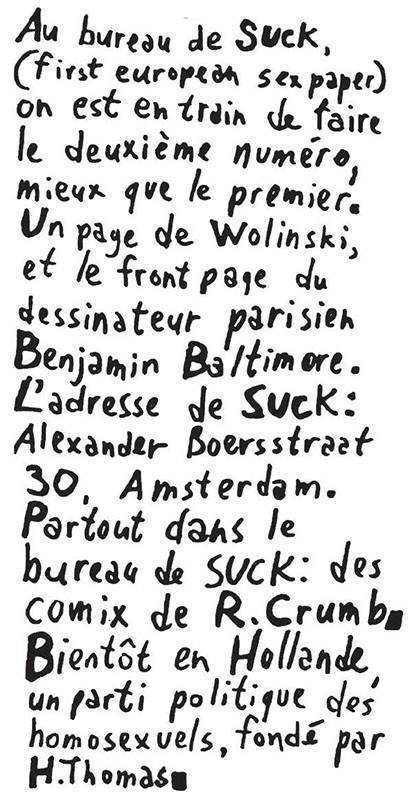 Au bureau de SUCK,
(first european sex paper)
on est en train de faire
le deuxième numéro,
mieux que le premier.
Un page de Wolinski,
et le front page du
dessinateur parisien
Benjamin Baltimore.
L'adresse de SUCK:
Alexander Boersstraat
30, Amsterdam.
Partout dans le
bureau de SUCK: des
comix de R.Crumb.
Bientôt en Hollande,
un parti politique des
homosexuels, fondé par
H.Thomas.